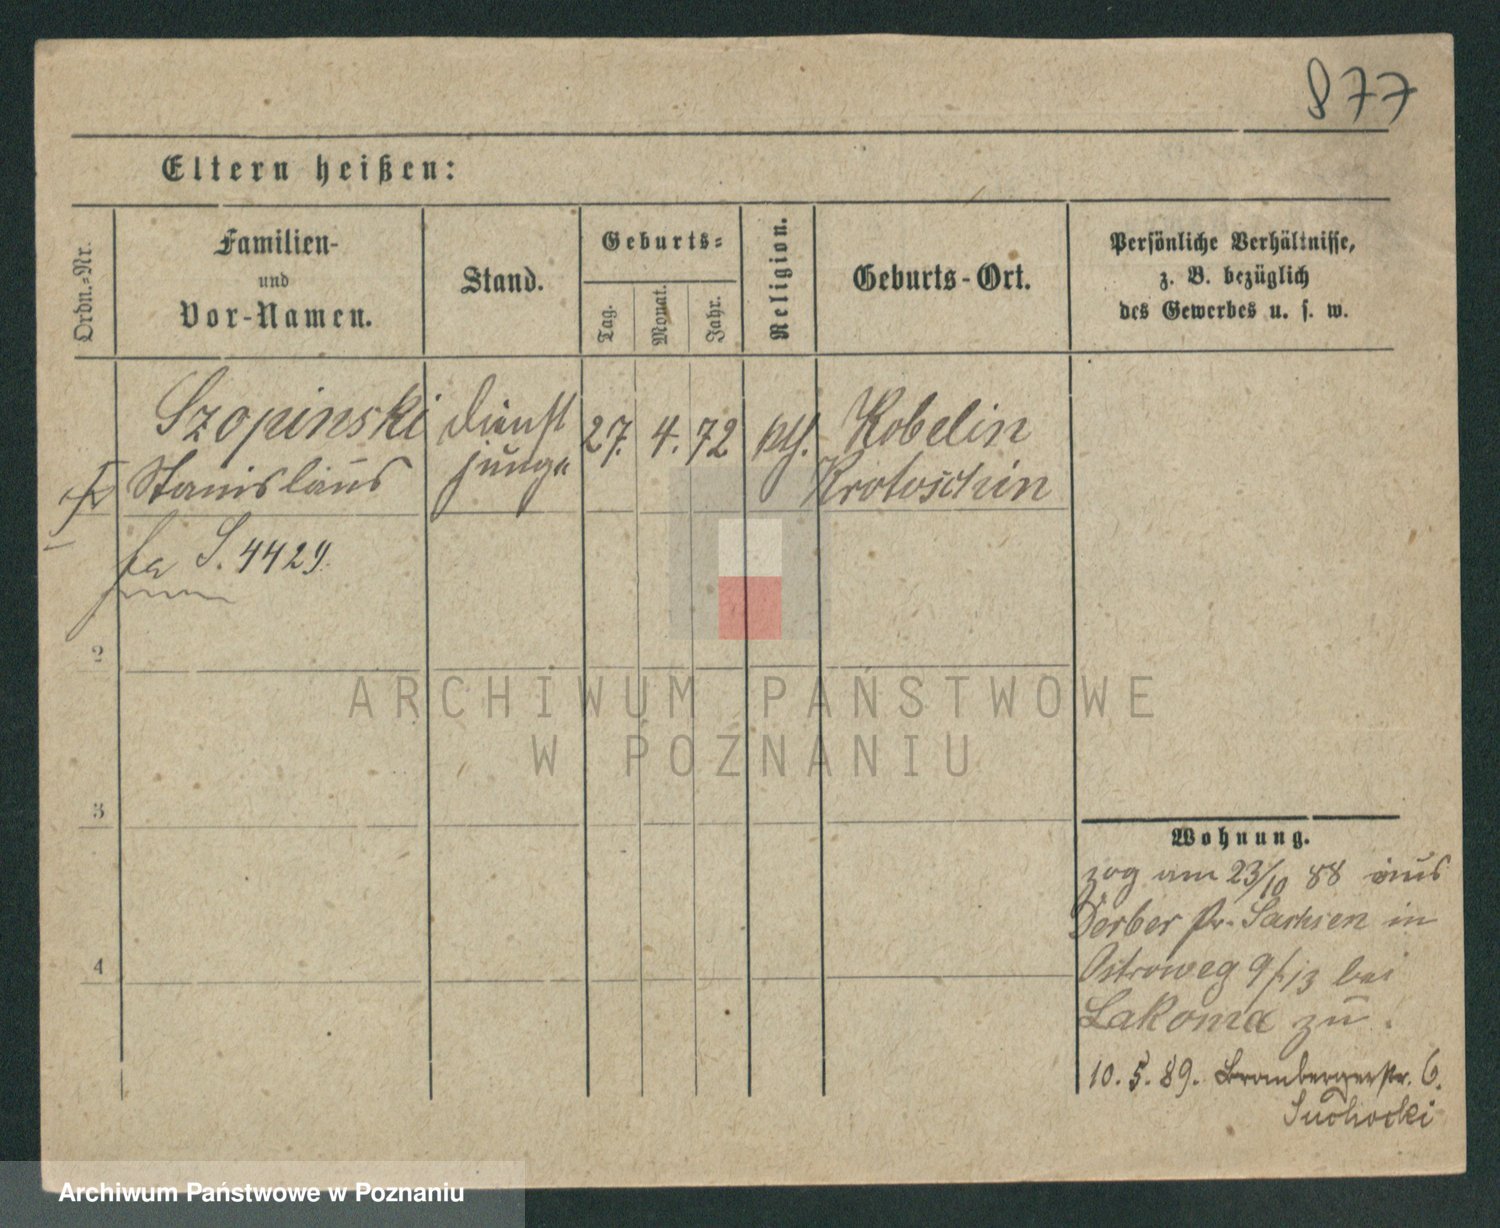 877
Eltern heißen:
Ordn.-Nr.
Familien-
und
Vor-Namen.
Stand.
Geburts-
Tag.
Monat.
Jahr.
Religion.
Geburts-Ort.
Persönliche Verhältnisse,
z. B. bezüglich
des Gewerbes u. s. w.
Szopinski
Stanislaus
Dienst
junge
27. 4. 72
kth.
Kobelin
Krotoschin
S. 4429.
2
3
4
Wohnung.
zog am 23/10 88 aus
Derber Pr. Sachsen in
Ostroweg 9/13 bei
Lakoma zu.
10. 5. 89. Brombergerstr. 6.
Suchocki
ARCHIWUM PAŃSTWOWE
W POZNANIU
Archiwum Państwowe w Poznaniu